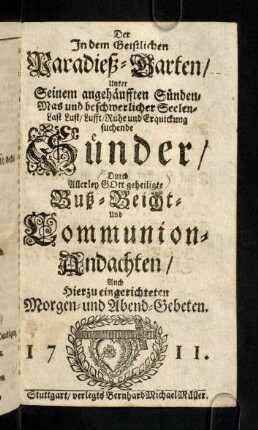 Der
In dem Geistlichen
Paradieß-Garten/
Unter
Seinem angehäufften Sünden-
Mas und beschwerlicher Seelen-
Last Lust/ Lufft/ Ruhe und Erquickung
suchende
Sünder/
Durch
Allerley GOtt geheiligte
Buß-Beicht-
Und
Communion-
Andachten/
Auch
Hierzu eingerichteten
Morgen- und Abend-Gebeten.
1711.
Stuttgart/ verlegts Bernhard Michael Müller.